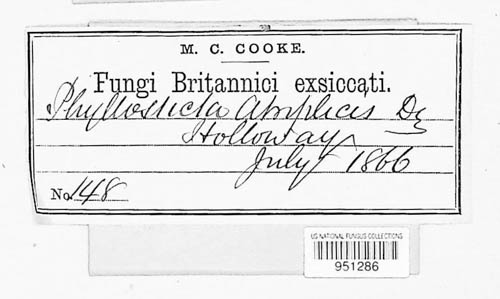 M. C. COOKE.
Fungi Britannici exsiccati.
Phyllosticta Atriplicis Dz
Holloway
July 1866
No. 148
US NATIONAL FUNGUS COLLECTIONS
951286